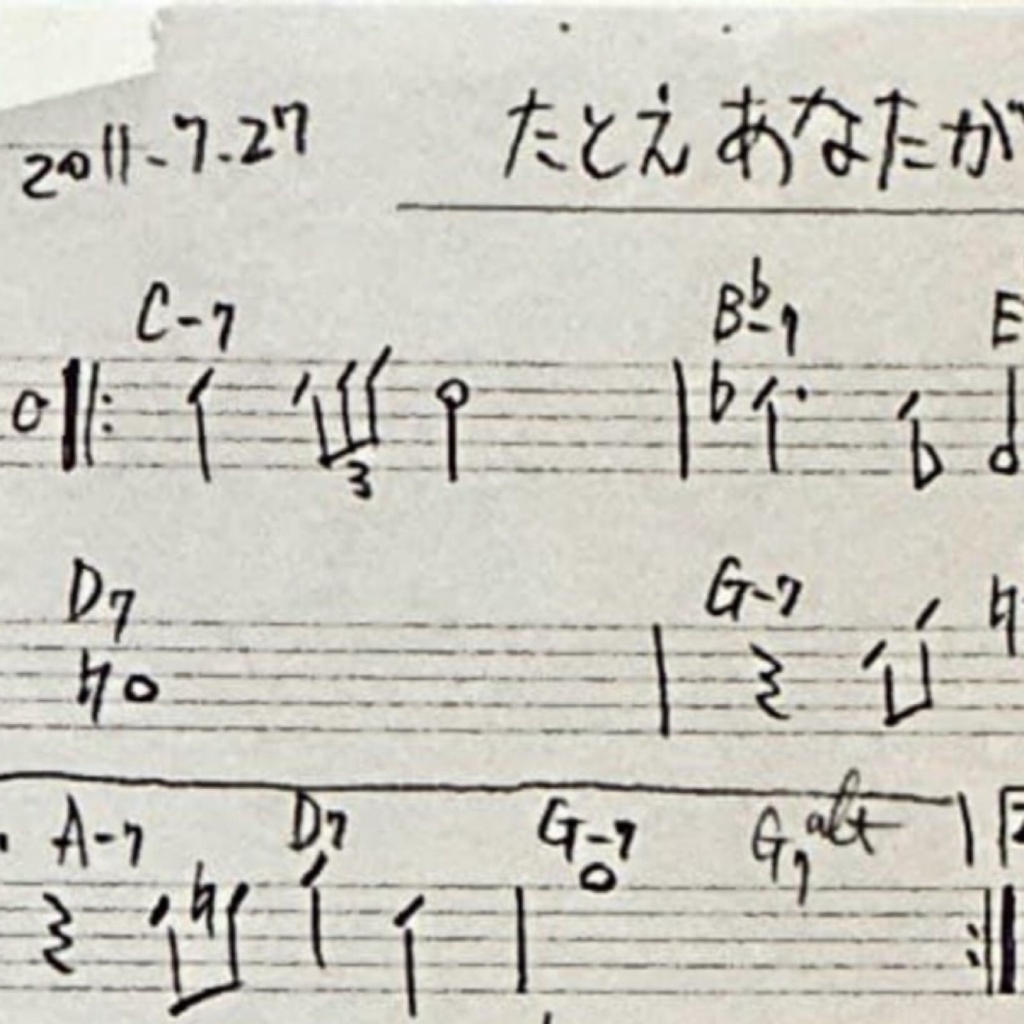 2011-7-27 たとえあなたが
C-7 B♭-7 E
3
D7 G-7
A-7 D7 G-7 G7alt